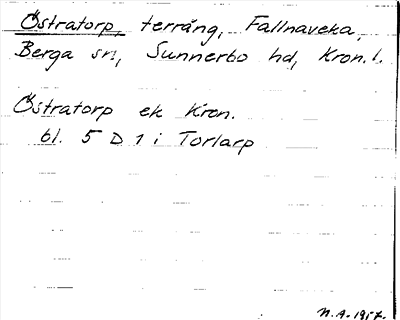 Östratorp, terräng, Fallnaveka,
Berga sn, Sunnerbo hd, Kron. l.
Östratorp ek Kron.
bl. 5 D 1 i Torlarp
N.A. 1957.